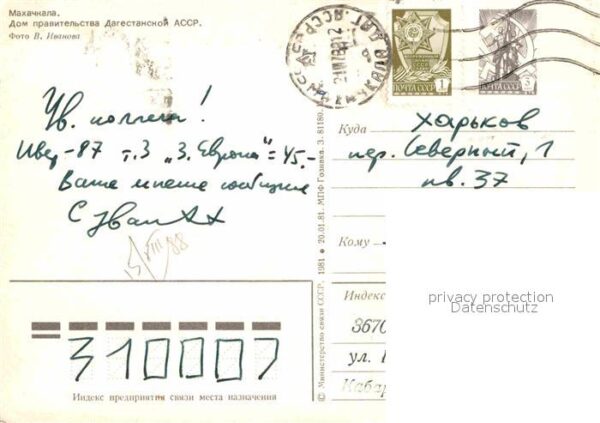 Махачкала.
Дом правительства Дагестанской АССР.
Фото В. Иванова
Ув. коллега!
Ивер-87 т.3 „З. Европа" = 45.-
Ваше мнение сообщите
С уваж
13/VIII 88
© Министерство связи СССР. 1981 ● 20.01.81. МПФ Гознака. З. 81180.
ПОЧТА СССР 1
ПОЧТА СССР 3
Куда Харьков
пер. Северный, 1
кв. 37
Кому
Индекс
3670
ул.
Кабар
privacy protection
Datenschutz
310007
Индекс предприятия связи места назначения